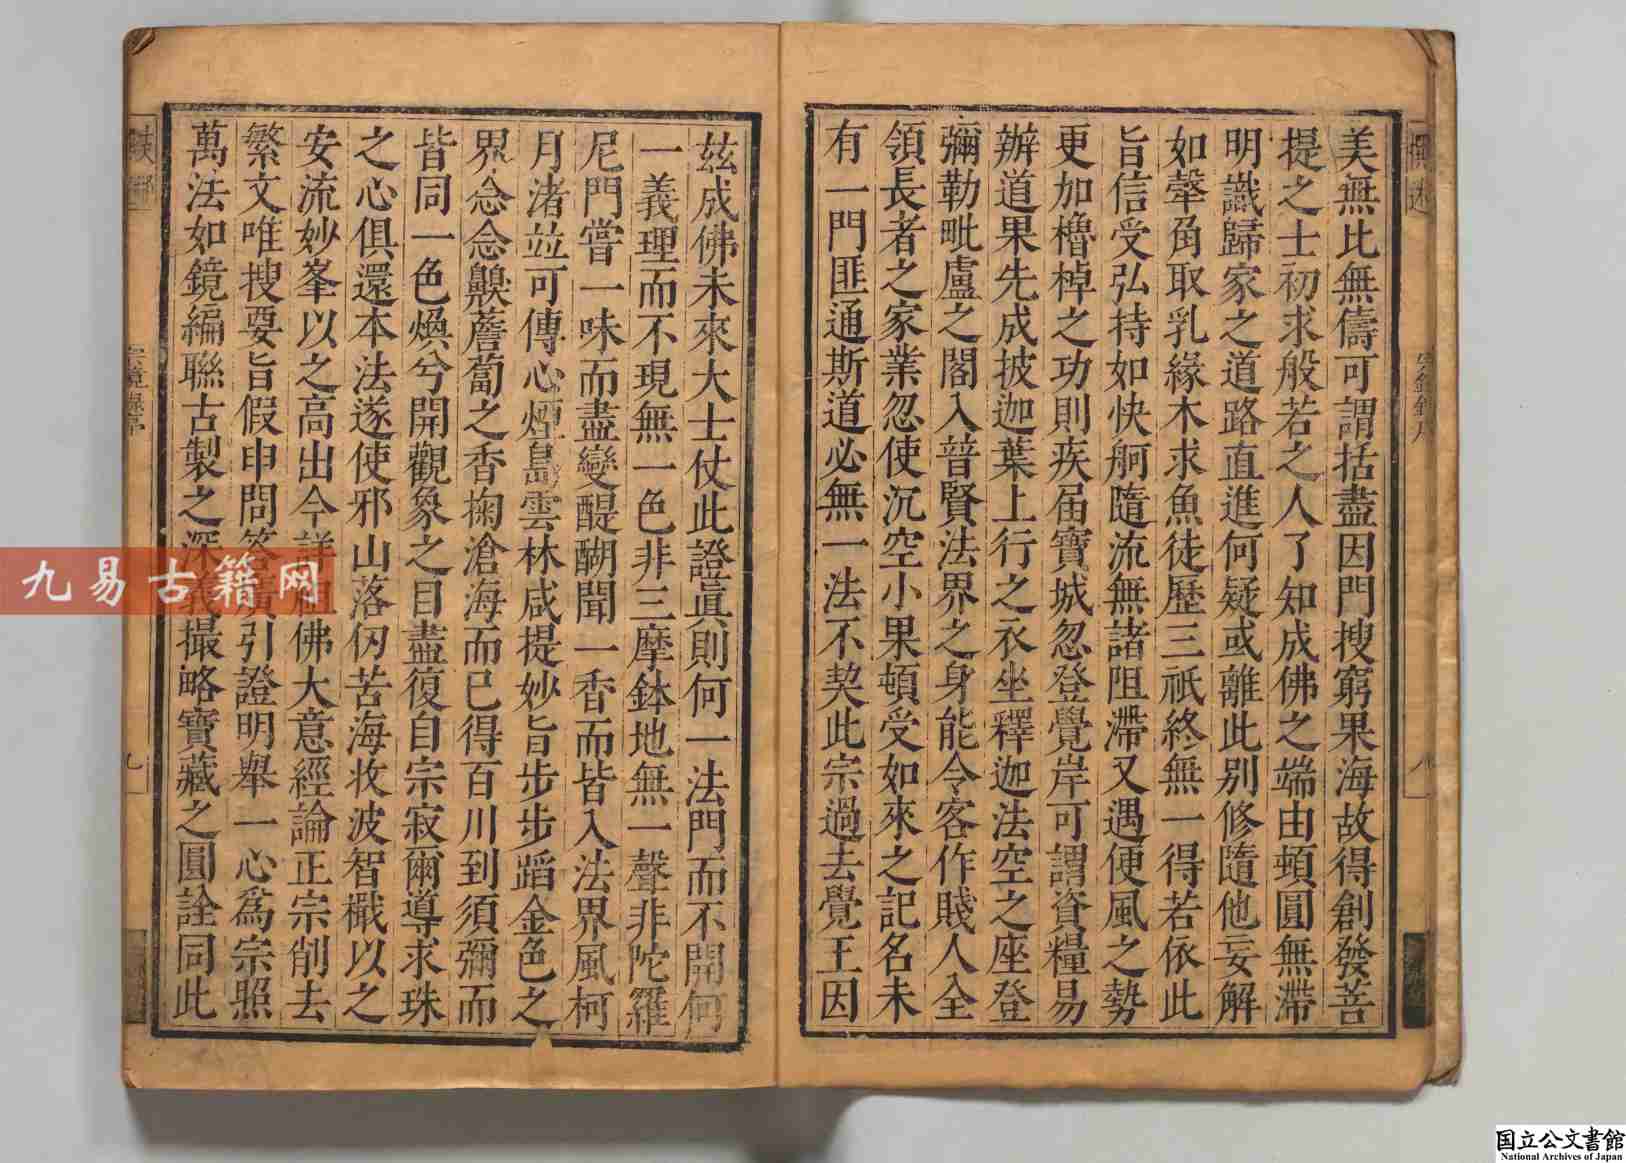 美無比無儔可謂括盡因門搜窮果海故得創發菩
提之士初求般若之人了知成佛之端由頓圓無滯
明識歸家之道路直進何疑或離此別修隨他妄解
如聲角取乳緣木求魚徒歷三祇終無一得若依此
旨信受弘持如快舸隨流無諸阻滯又遇便風之勢
更加櫓棹之功則疾届寶城忽登覺岸可謂資糧易
辦道果先成披迦葉上行之衣坐釋迦法空之座登
彌勒毗盧之閣入普賢法界之身能令客作賤人全
領長者之家業忽使沉空小果頓受如來之記名未
有一門匪通斯道必無一法不契此宗過去覺王因
茲成佛未來大士仗此證眞則何一法門而不開何
一義理而不現無一色非三摩鉢地無一聲非陀羅
尼門嘗一味而盡變醍醐聞一香而皆入法界風柯
月渚竝可傳心煙島雲林咸提妙旨步步蹈金色之
界念念齅薝蔔之香掬滄海而已得百川到須彌而
皆同一色煥兮開觀象之目盡復自宗寂爾導求珠
之心俱還本法遂使邪山落仭苦海收波智檝以之
安流妙峯以之高出今詳祖佛大意經論正宗削去
繁文唯搜要旨假申問答廣引證明舉一心爲宗照
萬法如鏡編聯古製之深義撮略寶藏之圓詮同此
宗鏡錄序
九
九易古籍网
国立公文書館
National Archives of Japan